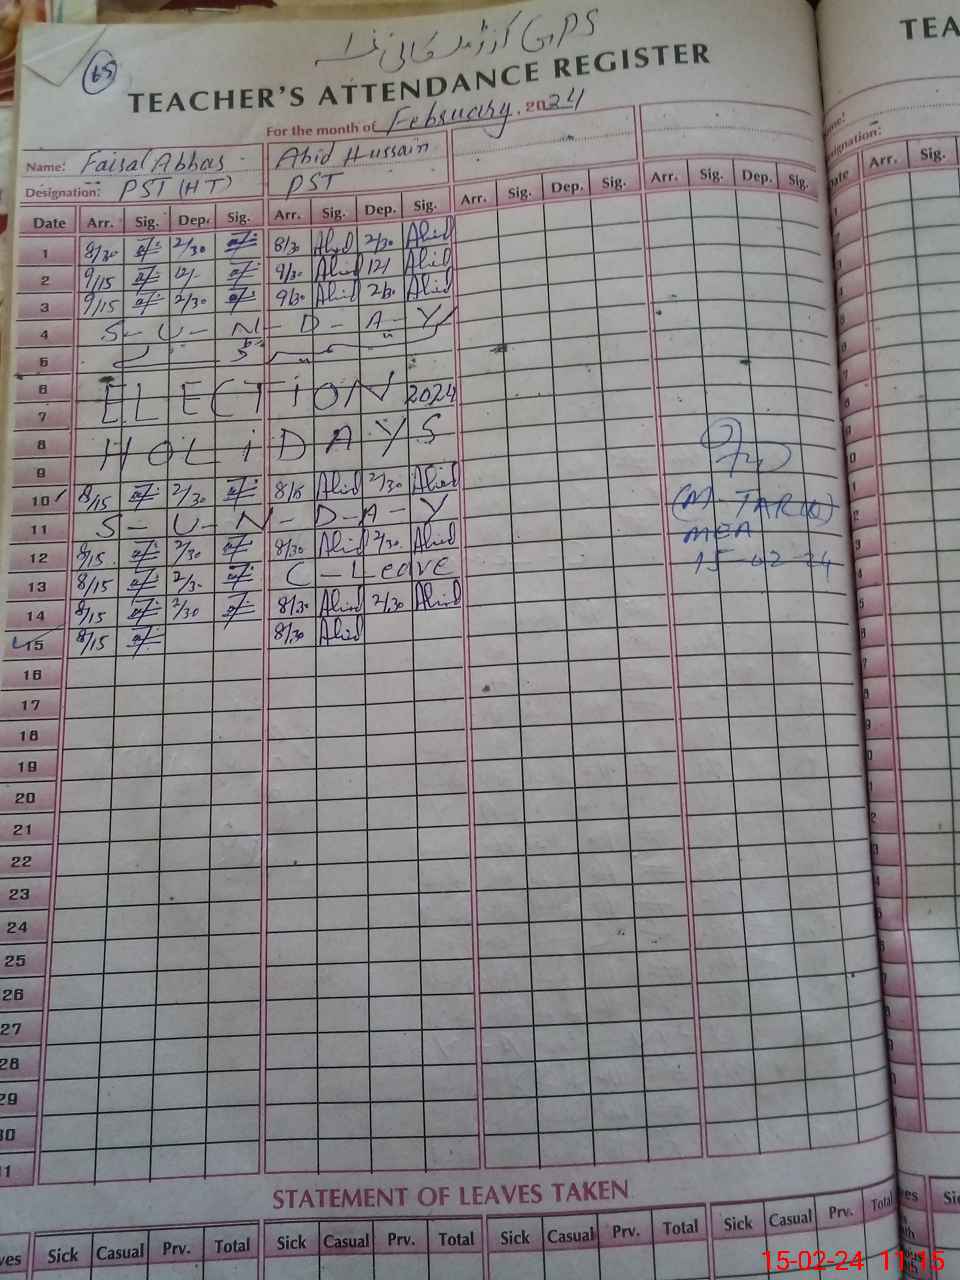 GPS
65
TEACHER'S ATTENDANCE REGISTER
For the month of February, 2024
Name: Faisal Abbas Abid Hussain
Designation: PST (HT) PST
Date Arr. Sig. Dep. Sig. Arr. Sig. Dep. Sig. Arr. Sig. Dep. Sig. Arr. Sig. Dep. Sig.
1 8/30 2/30 8/30 Abid 2/30 Abid
2 9/15 12/- 9/30 Abid 12/ Abid
3 9/15 2/30 9/30 Abid 2/30 Abid
4 S-U-N-D-A-Y
5
6 ELECTION 2024
7
8 HOLIDAYS
9
10 8/15 2/30 8/15 Abid 2/30 Abid
11 S-U-N-D-A-Y
12 8/15 2/30 8/30 Abid 2/30 Abid
13 8/15 2/30 C-Leave
14 8/15 2/30 8/30 Abid 2/30 Abid
15 8/15 8/30 Abid
(M. TARIQ)
MEA
15-02-24
16
17
18
19
20
21
22
23
24
25
26
27
28
29
30
STATEMENT OF LEAVES TAKEN
Sick Casual Prv. Total Sick Casual Prv. Total Sick Casual Prv. Total Sick Casual Prv. Total
TEA
Arr. Sig.
15-02-24 11:15